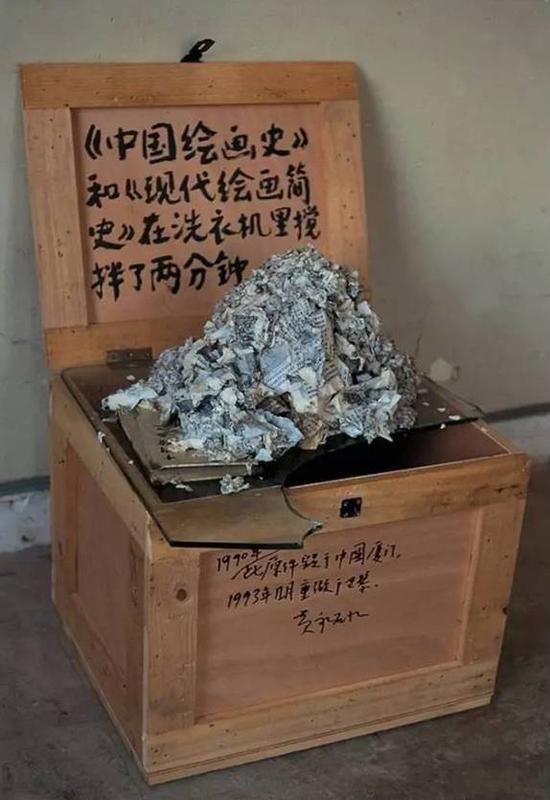 《中国绘画史》
和《现代绘画简
史》在洗衣机里搅
拌了两分钟
1990年
此原件毁于中国厦门.
1993年 重做于巴黎.
黄永砯